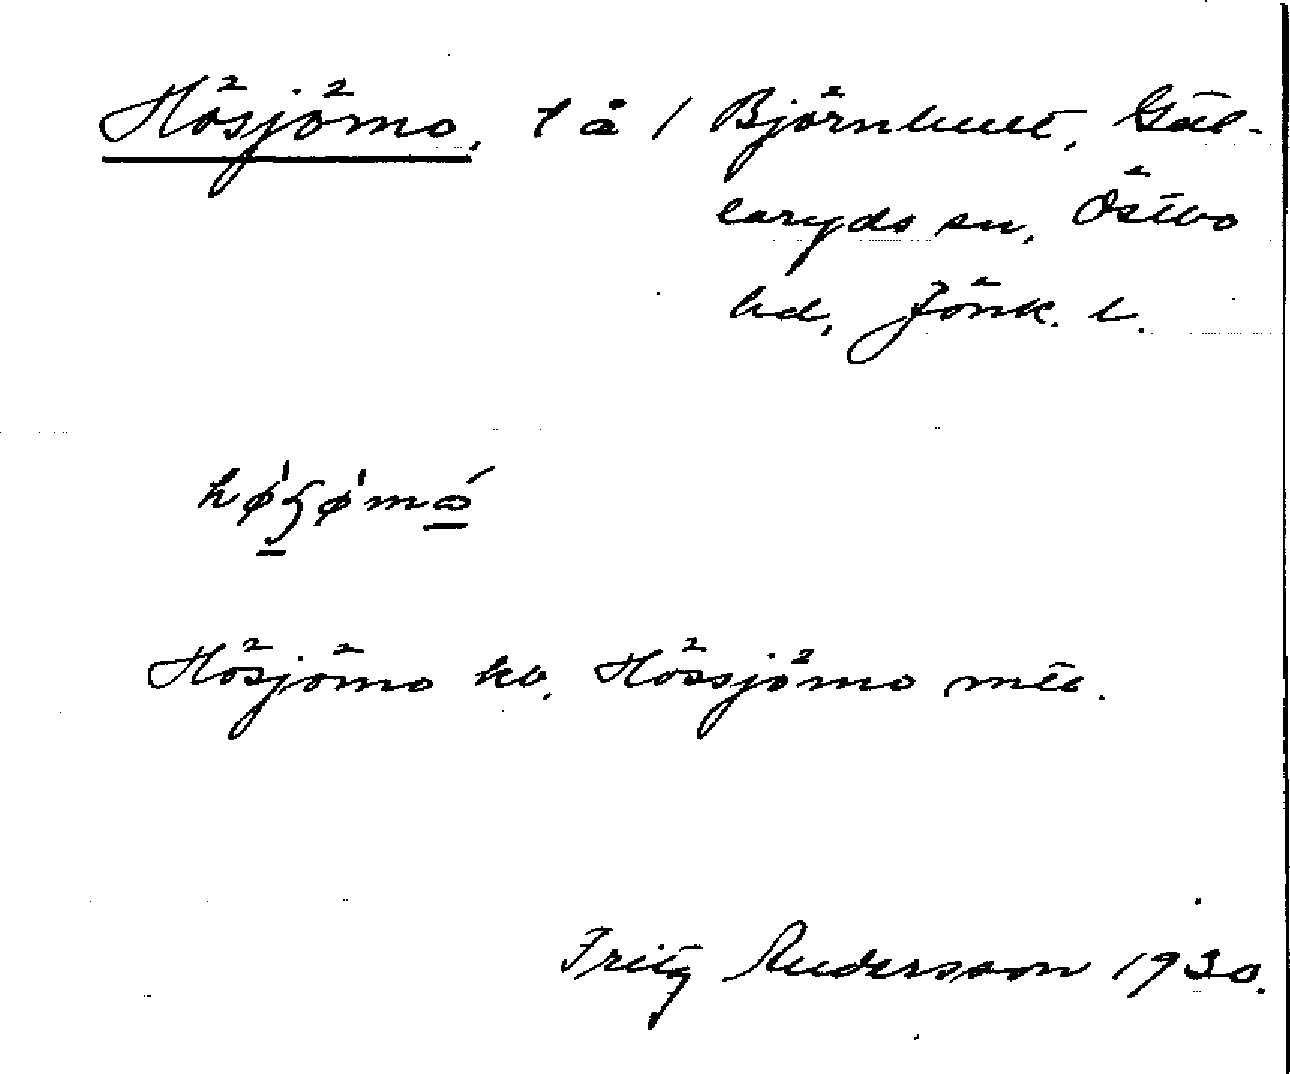 Hösjömo, t å / Björnhult, Gäl-
laryds sn, Östbo
hd, Jönk. l.
Hösjömo kb. Hössjömo mtl.
Fritz Andersson 1930.